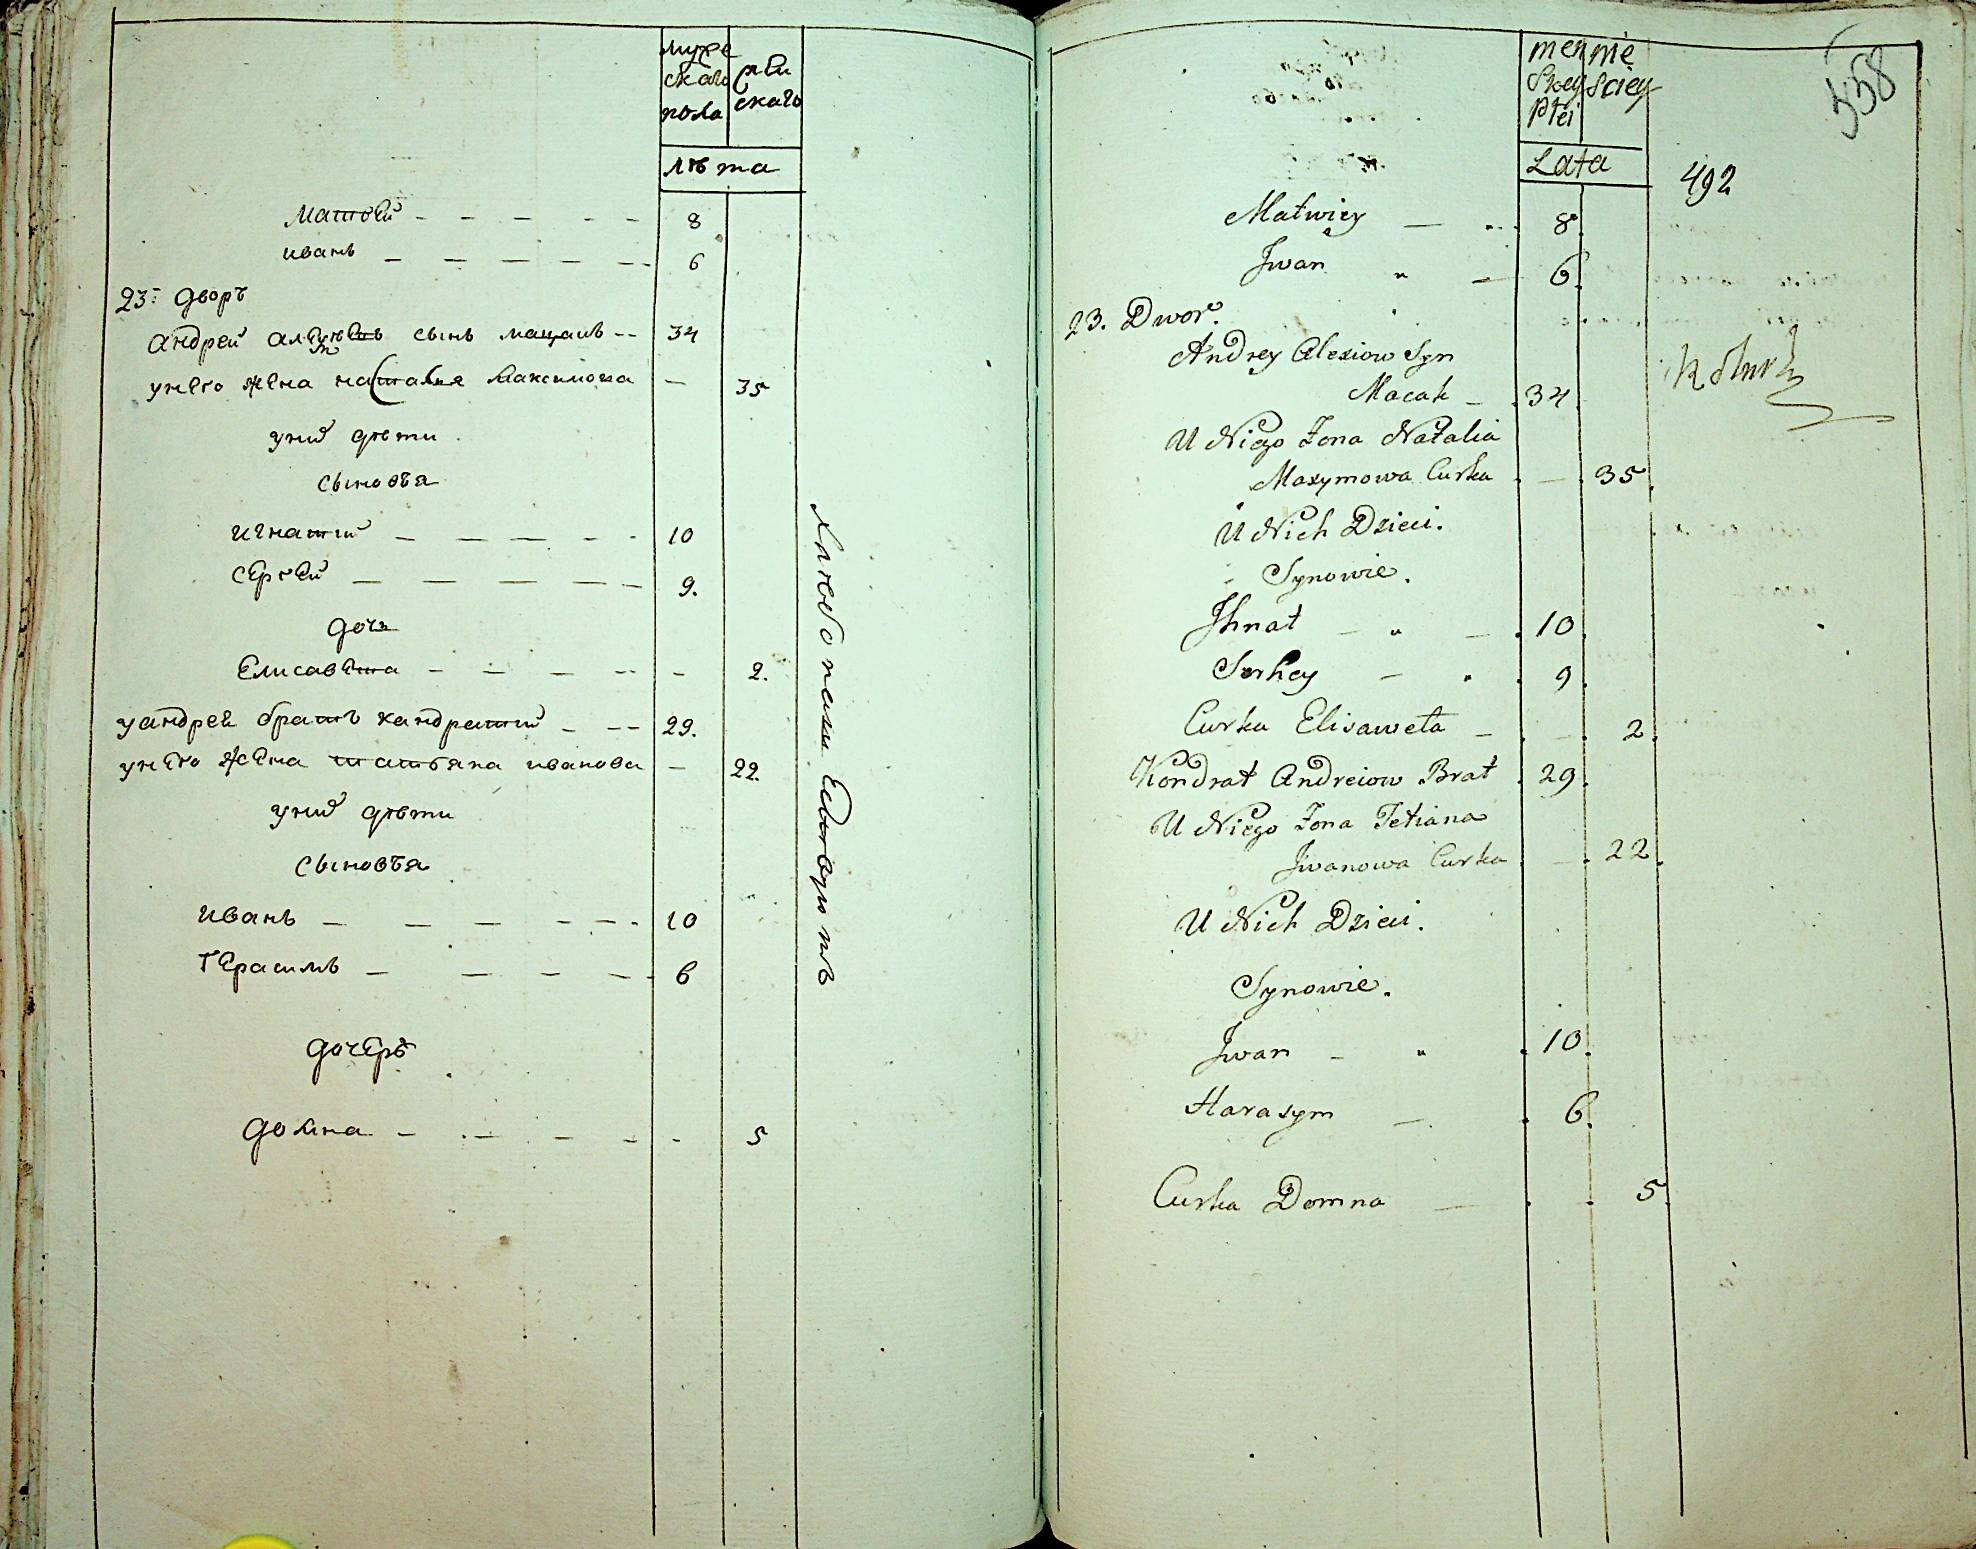 муже
скаго
пола
жен
скаго
лѣта
Матвей 8
иванъ 6
23: дворъ
андрей алексѣевъ сынъ мацакъ 34
унего жена наталья максимова 35
уних дѣти
сыновъя
игнатий 10
сергей 9.
дочь
Елисавета 2.
уандрея братъ кандратий 29.
унего жена татъяна иванова 22.
уних дѣти
сыновъя
иванъ 10
герасимъ 6
дочерь
домна 5
men
skey
płei
nie
sciey
Lata
558
492
Matwiey 8.
Jwan 6.
23. Dwor.
Andrey Alexiow Syn
Macak 34
U Niego Zona Natalia
Maxymowa Curka 35.
U Nich Dzieci.
Synowie.
Jhnat 10.
Serhey 9.
Curka Elisaweta 2.
Kondrat Andreiow Brat 29.
U Niego Zona Tetiana
Jwanowa Curka 22.
U Nich Dzieci.
Synowie.
Jwan 10.
Harasym 6.
Curka Domna 5.